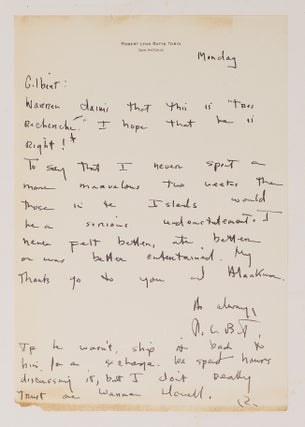 ROBERT LYNN BATTS TOBIN
SAN ANTONIO
Monday
Gilbert:
Warren claims that this is "tres
recherche." I hope that he is
right!
To say that I never spent a
more marvelous two weeks than
those in the Islands would
be a serious understatement. I
never felt better, ate better
or was better entertained. My
thank go to you and
As always,
R.L.B.T.
If he wasn't, ship it back to
him for an exchange. We spent hours
discussing it, but I don't really
trust me Warren Howell.
R.